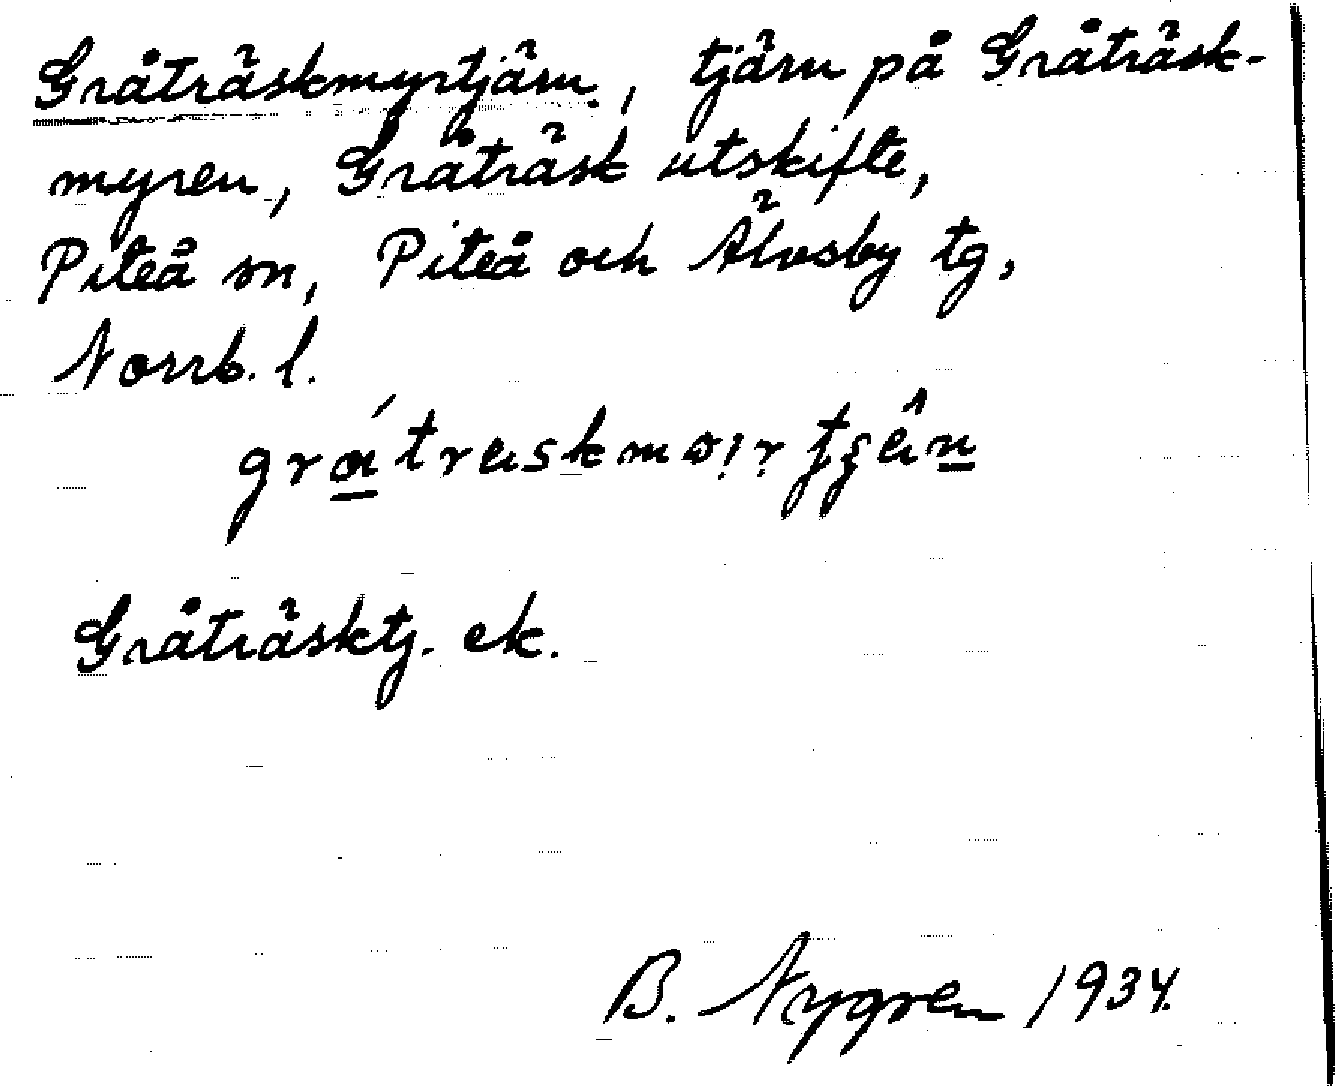 Gråträskmyrtjärn, tjärn på Gråträsk-
myren, Gråträsk utskifte,
Piteå sn, Piteå och Älvsby tg,
Norrb. l.
Gråträsktj. ek.
B. Nygren 1934.